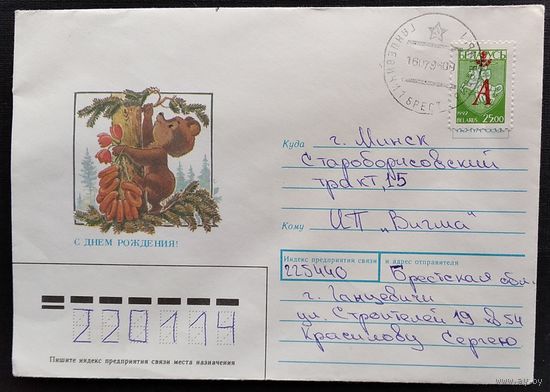 БЕЛАРУСЬ
А
1992
BELARUS
25.00
БРЕСТ
Куда
г. Минск
Староборисовский
тракт, 15
Кому
ИП „Вигма"
С ДНЕМ РОЖДЕНИЯ!
Индекс предприятия связи и адрес отправителя
225440 Брестская обл.
г. Ганцевичи
ул. Строителей 19 кв 54
Красилову Сергею
220114
Пишите индекс предприятия связи места назначения